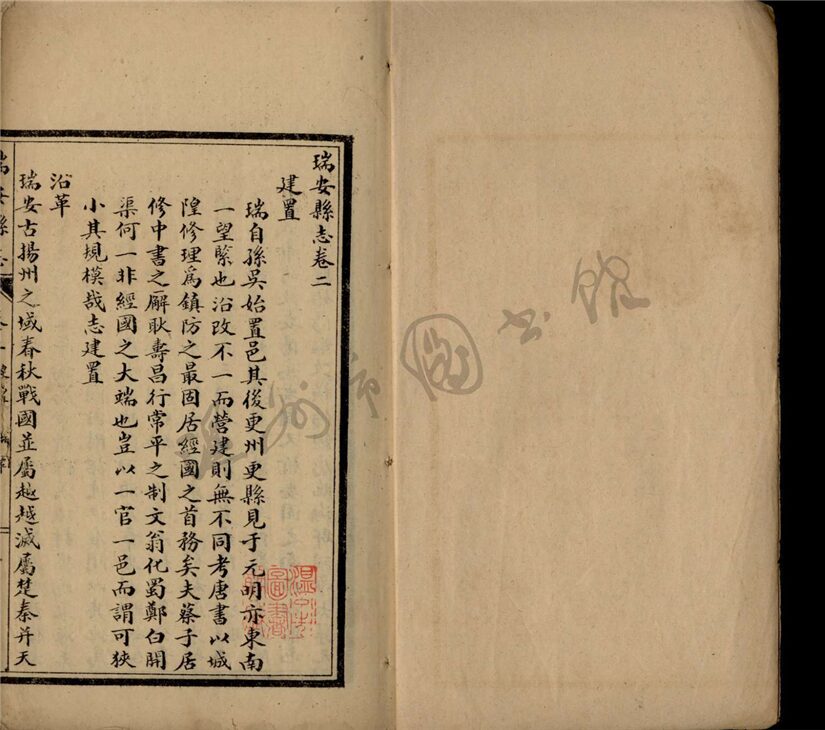 瑞安縣志卷二
建置
瑞自孫吳始置邑其後更州更縣見于元明亦東南
一望縣也沿改不一而營建則無不同考唐書以城
隍修理爲鎮防之最固居經國之首務矣夫蔡子居
修中書之廨耿壽昌行常平之制文翁化蜀鄭白開
渠何一非經國之大端也豈以一官一邑而謂可狹
小其規模哉志建置
沿革
瑞安古揚州之域春秋戰國並屬越越滅屬楚秦并天
瑞安縣志
州市圖书馆